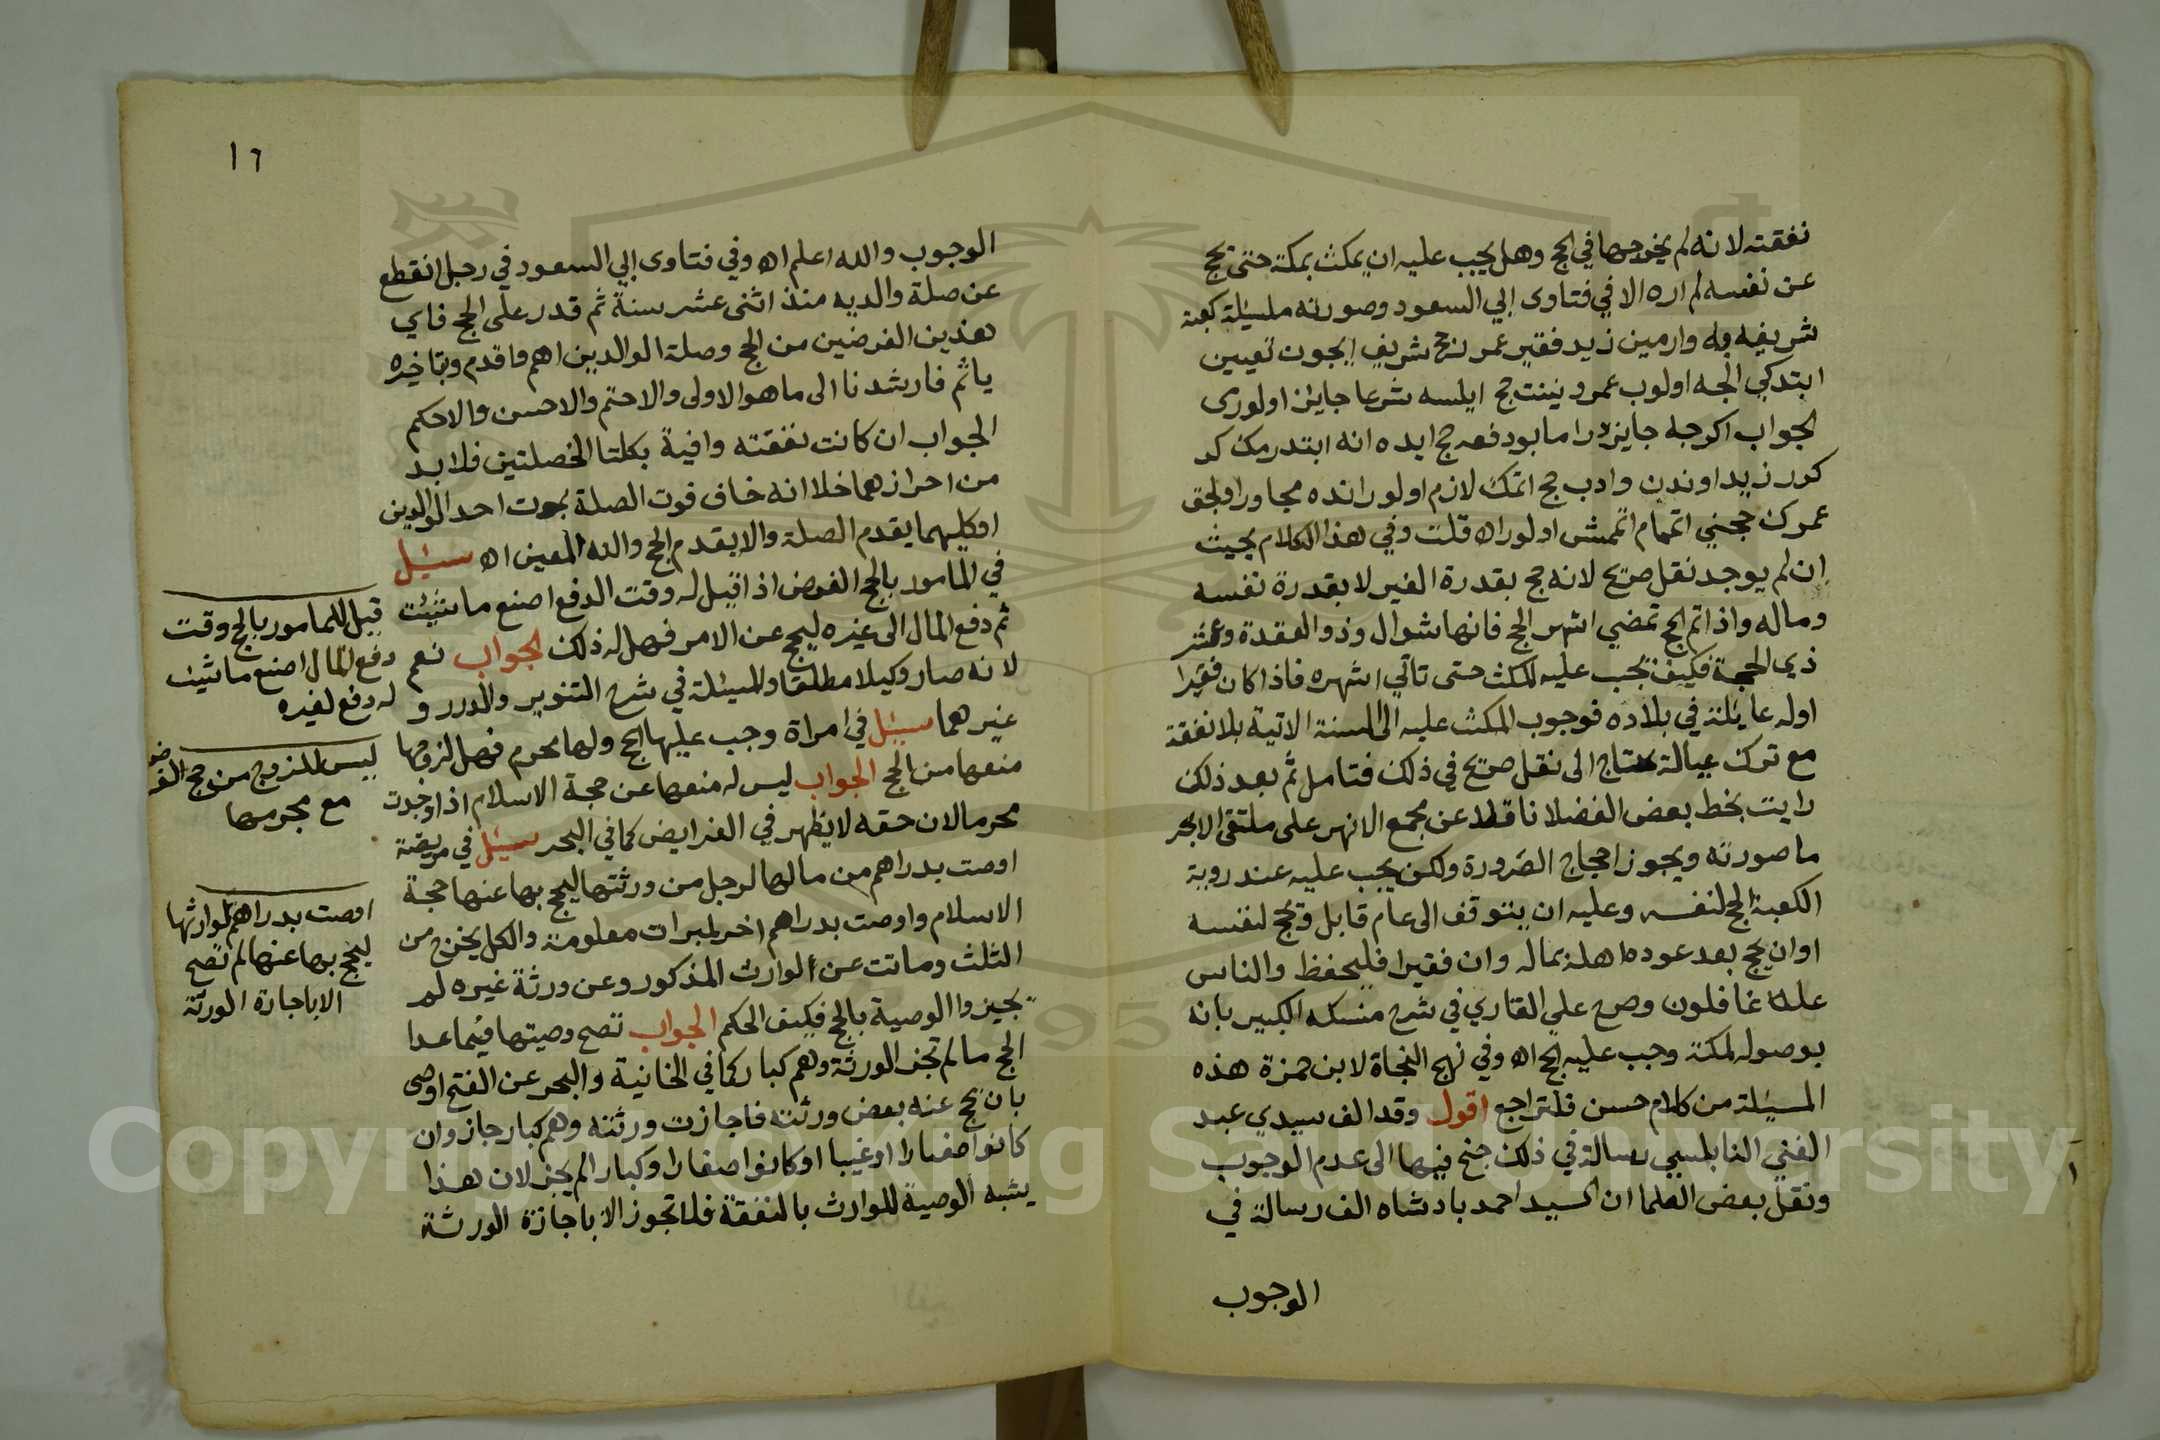 نفقته لانه لم يخرجها في الحج وهل يجب عليه ان يمكث بمكة حتى يحج
عن نفسه لم اره الا في فتاوى ابي السعود وصورته مسئلة كعبه
شريفه يه وارمين زيد فقير عمر نج شريف ايجون تعيين
ابتدكي اجه اولوب عمرو نيتنه حج ايلسه شرعا جايز اولورى
الجواب اكرچه جايز در اما بو دفعه حج ايده انه ابتدرمك كر
كور زيد اوندن وادب حج اتمك لازم اولور انده مجاور اولجق
عمرك حجني اتمام اتمش اولور اه قلت وفي هذا الكلام بحيث
ان لم يوجد نقل صريح لانه حج بقدرة الغير لا بقدرة نفسه
وماله واذا تم الحج تمضي اشهر الحج فانها شوال وذو القعدة وعشر
ذي الحجة فكيف يجب عليه المكث حتى تاتي اشهره فاذا كان فقيرا
اوله عائلة في بلاده فوجوب المكث عليه الى السنة الاتية بلا نفقة
مع ترك عياله محتاج الى نقل صريح في ذلك فتامل ثم بعد ذلك
رايت بخط بعض الفضلا ناقلا عن مجمع الانهر على ملتقى الابحر
ما صورته ويجوز احجاج الصرورة ولكن يجب عليه عند روية
الكعبة الحج لنفسه وعليه ان يتوقف الى عام قابل ويحج لنفسه
او ان يحج بعد عوده اهله بماله وان فقيرا فليحفظ والناس
عنها غافلون وصرح علي القاري في شرح منسكه الكبير بانه
بوصوله لمكة وجب عليه الحج اه وفي نهج النجاة لابن حمزة هذه
المسئلة من كلام حسن فلتراجع اقول وقد الف سيدي عبد
الغني النابلسي رسالة في ذلك جنح فيها الى عدم الوجوب
ونقل بعض العلما ان السيد احمد بادشاه الف رسالة في
الوجوب
١٦
الوجوب والله اعلم اه وفي فتاوى ابي السعود في رجل انقطع
عن صلة والديه منذ اثنى عشر سنة ثم قدر على الحج فاي
هذين الفرضين من الحج وصلة الوالدين اهم واقدم وبتاخيره
ياثم فارشدنا الى ما هو الاولى والاحتم والاحسن والاحكم
الجواب ان كانت نفقته وافية بكلتا الخصلتين فلا بد
من احرازهما خلا انه خاف فوت الصلة بموت احد الوالدين
او كليهما يقدم الصلة والا يقدم الحج والله المعين اه سئيل
في المامور بالحج الفرض اذا قيل له وقت الدفع اصنع ما شئيت
ثم دفع المال الى غيره ليحج عن الامر فهل له ذلك الجواب نعم
لانه صار وكيلا مطلقا والمسئلة في شرح التنوير والدرر و
غيرهما سئيل في امراة وجب عليها الحج ولها محرم فهل لزوجها
منعها من الحج الجواب ليس له منعها عن حجة الاسلام اذا وجدت
محرما لان حقه لا يظهر في الفرايض كما في البحر سئيل في مريضة
اوصت بدراهم من مالها لرجل من ورثتها ليحج بها عنها حجة
الاسلام واوصت بدراهم اخر لمبرات معلومة والكل يخرج من
الثلث وماتت عن الوارث المذكور وعن ورثة غيره لم
يجيزوا الوصية بالحج فكيف الحكم الجواب تصح وصيتها فيما عدا
الحج ما لم تجز الورثة وهم كبار كما في الخانية والبحر عن الفتح اوصى
بان يحج عنه بعض ورثته فاجازت ورثته وهم كبار جاز وان
كانوا صغارا او غيبا او كانوا صغارا وكبارا لم يجز لان هذا
يشبه الوصية للوارث بالنفقة فلا تجوز الا باجازة الورثة
قيل للمامور بالحج وقت
دفع المال اصنع ما شئيت
له دفع لغيره
ليس للزوج من حج الفرض
مع محرمها
اوصت بدراهم لوارثها
ليحج بها عنها لم تصح
الا باجازة الورثة
Copyright © King Saud University